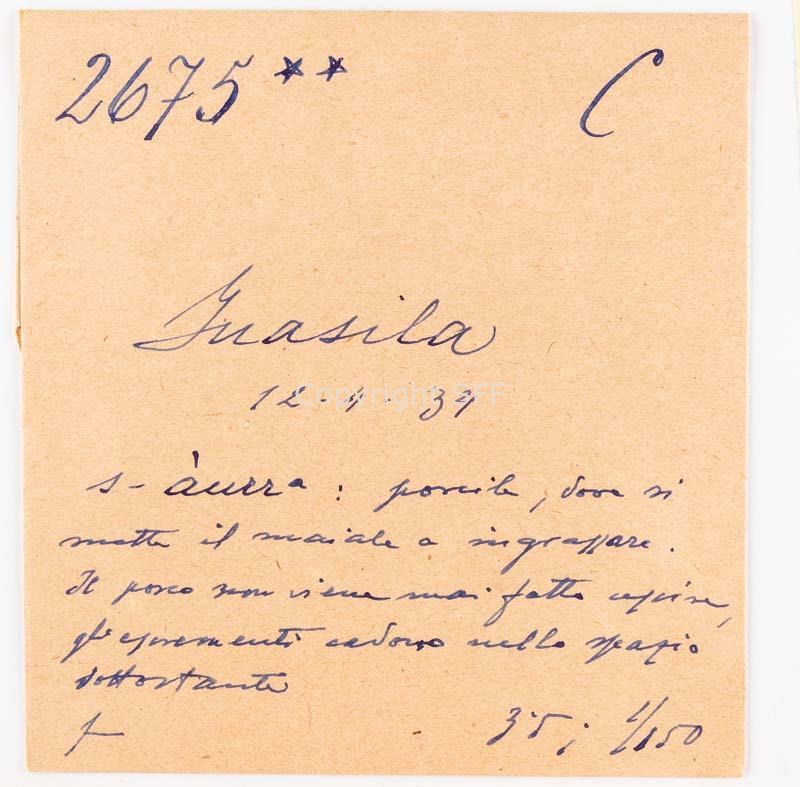 2675 ** C
Guasila
Copyright SFF
12-4-34
s- àurra : porcile, dove si
mette il maiale a ingrassare.
Il porco non viene mai fatto uscire,
gli escrementi cadono nello spazio
sottostante
f
3'5 ; 1/150